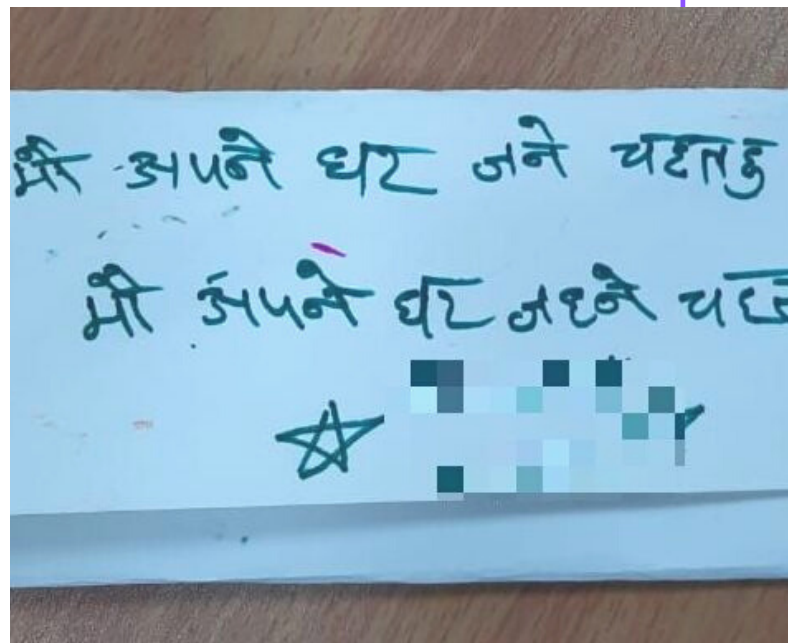 मै अपने घर जने चहतहु
मै अपने घर जहने